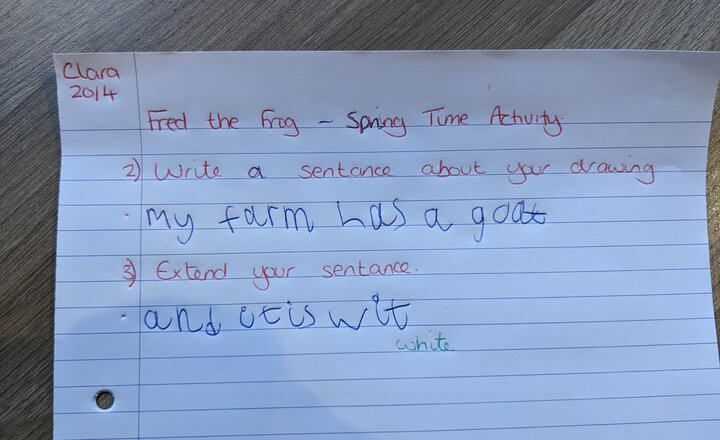 Clara
20/4
Fred the Frog ~ Spring Time Activity.
2) Write a sentance about your drawing
. my farm has a goat
3) Extend your sentance.
. and it is wit
white